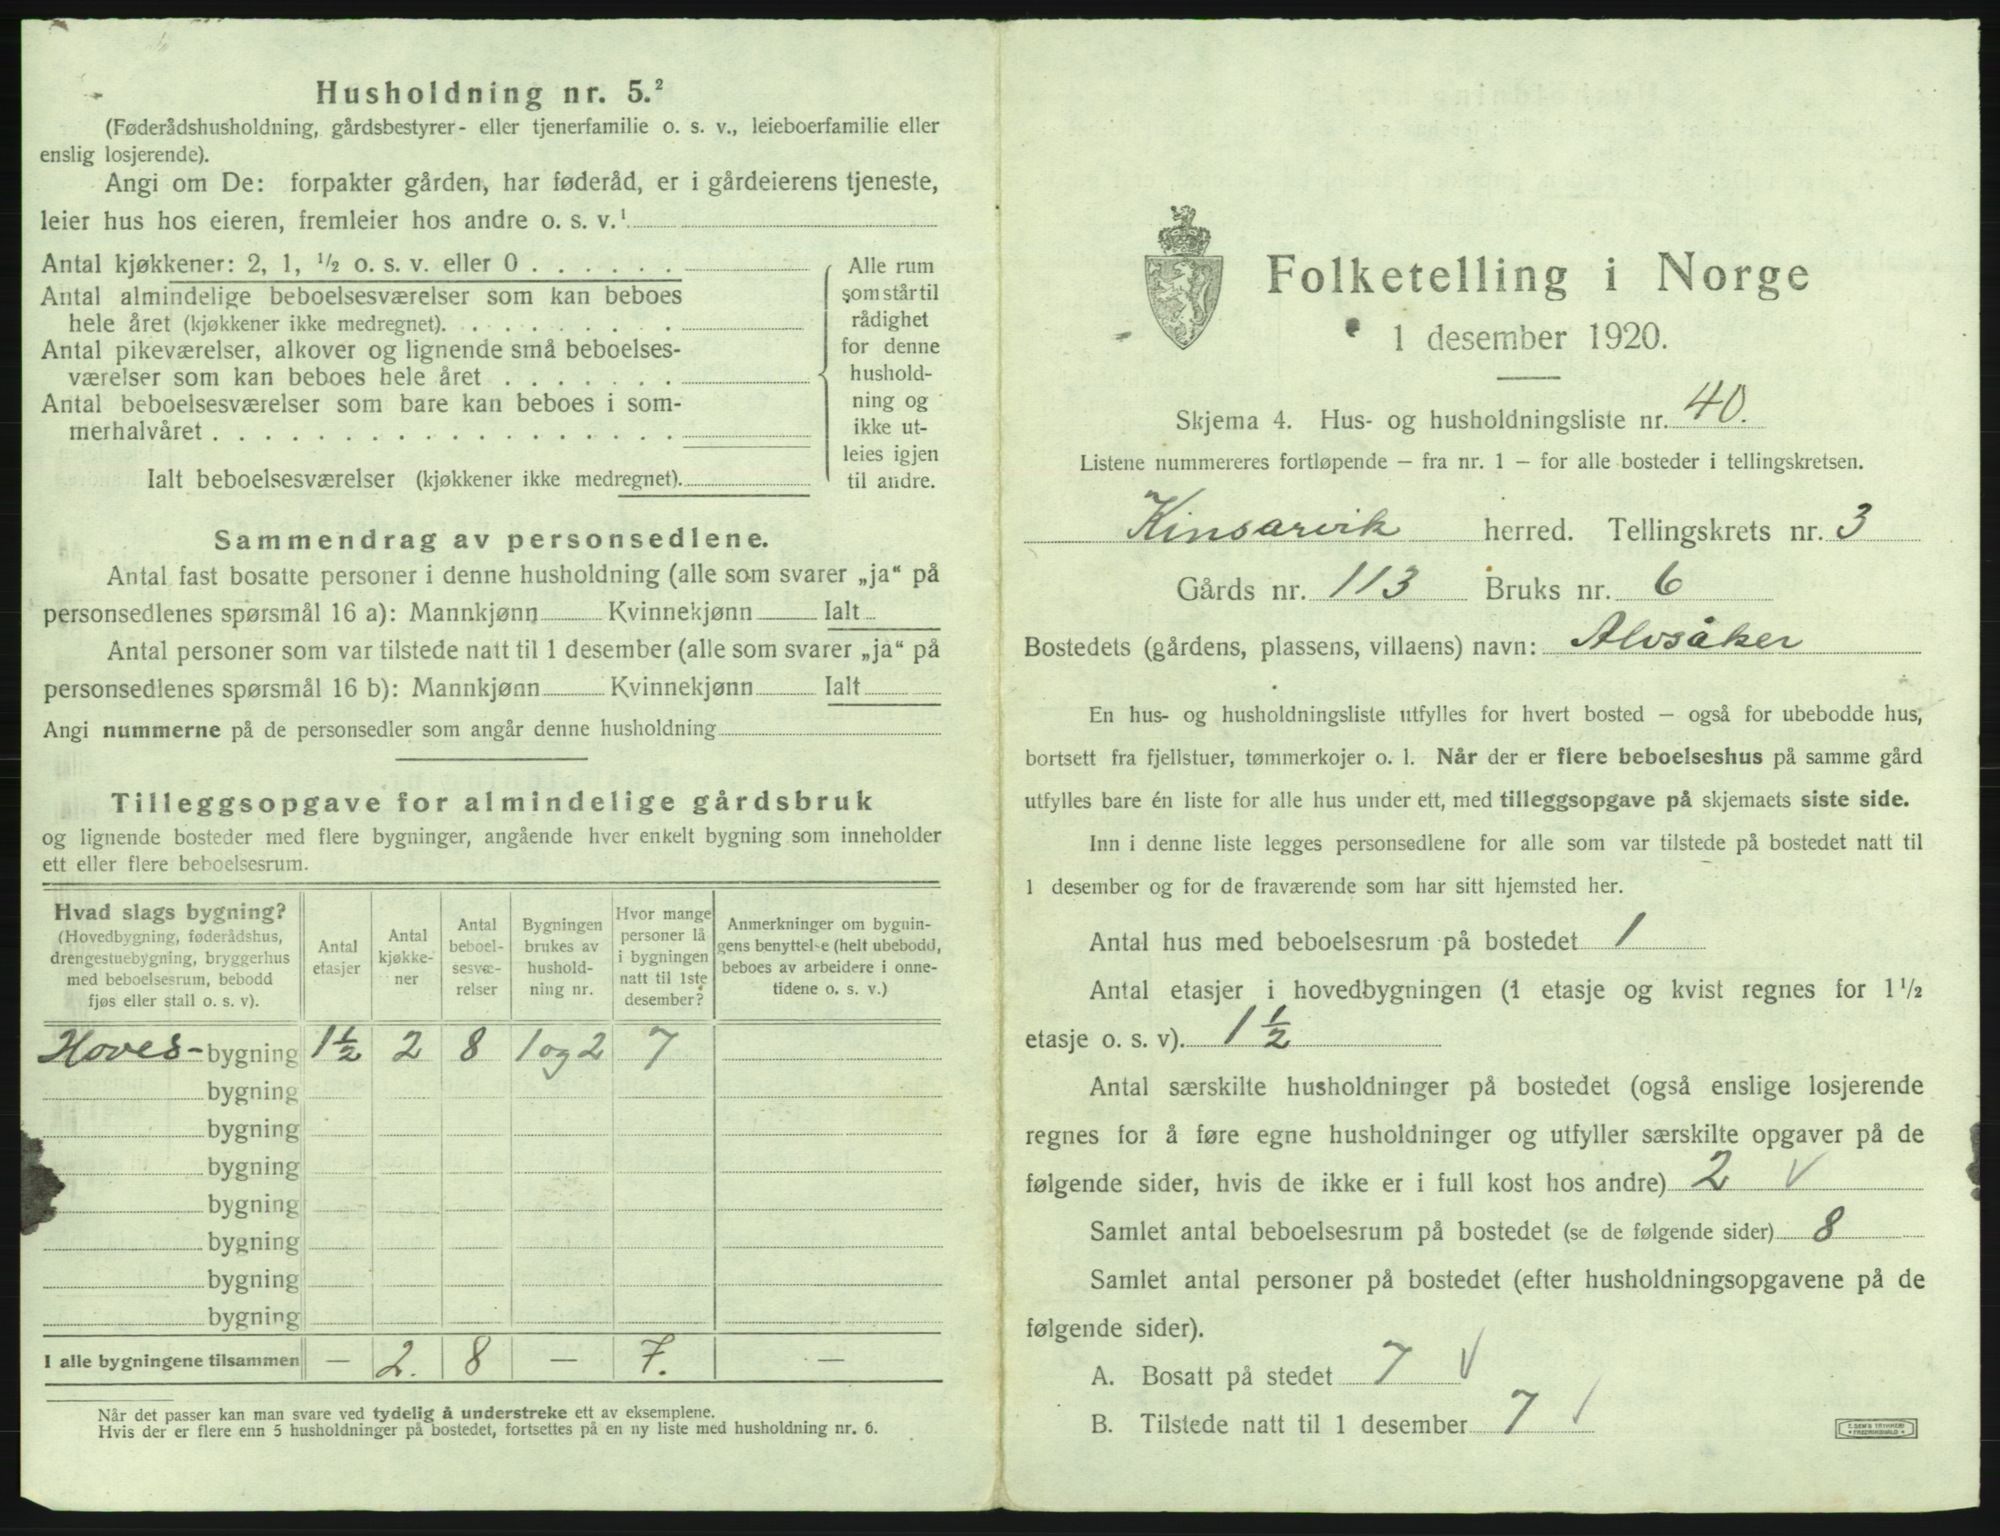 Husholdning nr. 5.²
(Føderådshusholdning, gårdsbestyrer- eller tjenerfamilie o. s. v., leieboerfamilie eller
enslig losjerende).
Angi om De: forpakter gården, har føderåd, er i gårdeierens tjeneste,
leier hus hos eieren, fremleier hos andre o. s. v.¹
Antal kjøkkener: 2, 1, ½ o. s. v. eller 0 . . . . . .
Antal almindelige beboelsesværelser som kan beboes
hele året (kjøkkener ikke medregnet). . . . . . . . .
Antal pikeværelser, alkover og lignende små beboelses-
værelser som kan beboes hele året . . . . . . .
Antal beboelsesværelser som bare kan beboes i som-
merhalvåret . . . . . . . . . . . . . . . . . .
Ialt beboelsesværelser (kjøkkener ikke medregnet).
Alle rum
som står til
rådighet
for denne
hushold-
ning og
ikke ut-
leies igjen
til andre.
Sammendrag av personsedlene.
Antal fast bosatte personer i denne husholdning (alle som svarer „ja“ på
personsedlenes spørsmål 16 a): Mannkjønn Kvinnekjønn Ialt
Antal personer som var tilstede natt til 1 desember (alle som svarer „ja“ på
personsedlenes spørsmål 16 b): Mannkjønn Kvinnekjønn Ialt
Angi nummerne på de personsedler som angår denne husholdning
Tilleggsopgave for almindelige gårdsbruk
og lignende bosteder med flere bygninger, angående hver enkelt bygning som inneholder
ett eller flere beboelsesrum.
Hvad slags bygning?
(Hovedbygning, føderådshus,
drengestuebygning, bryggerhus
med beboelsesrum, bebodd
fjøs eller stall o. s. v).
Antal
etasjer
Antal
kjøkke-
ner
Antal
beboel-
sesvæ-
relser
Bygningen
brukes av
hushold-
ning nr.
Hvor mange
personer lå
i bygningen
natt til 1ste
desember?
Anmerkninger om bygnin-
gens benyttelse (helt ubebodd,
beboes av arbeidere i onne-
tidene o. s. v.)
Hoves- bygning 1½ 2 8 1 og 2 7
bygning
bygning
bygning
bygning
bygning
bygning
bygning
I alle bygningene tilsammen — 2. 8 — 7. —
Når det passer kan man svare ved tydelig å understreke ett av eksemplene.
Hvis der er flere enn 5 husholdninger på bostedet, fortsettes på en ny liste med husholdning nr. 6.
Folketelling i Norge
1 desember 1920.
Skjema 4. Hus- og husholdningsliste nr. 40.
Listene nummereres fortløpende – fra nr. 1 – for alle bosteder i tellingskretsen.
Kinsarvik herred. Tellingskrets nr. 3
Gårds nr. 113 Bruks nr. 6
Bostedets (gårdens, plassens, villaens) navn: Alvsåker
En hus- og husholdningsliste utfylles for hvert bosted – også for ubebodde hus,
bortsett fra fjellstuer, tømmerkojer o. l. Når der er flere beboelseshus på samme gård
utfylles bare én liste for alle hus under ett, med tilleggsopgave på skjemaets siste side.
Inn i denne liste legges personsedlene for alle som var tilstede på bostedet natt til
1 desember og for de fraværende som har sitt hjemsted her.
Antal hus med beboelsesrum på bostedet 1
Antal etasjer i hovedbygningen (1 etasje og kvist regnes for 1½
etasje o. s. v). 1½
Antal særskilte husholdninger på bostedet (også enslige losjerende
regnes for å føre egne husholdninger og utfyller særskilte opgaver på de
følgende sider, hvis de ikke er i full kost hos andre) 2 √
Samlet antal beboelsesrum på bostedet (se de følgende sider) 8
Samlet antal personer på bostedet (efter husholdningsopgavene på de
følgende sider).
A. Bosatt på stedet 7 √
B. Tilstede natt til 1 desember 7 /
E. SEM'S TRYKKERI
• FREDRIKSHALD •